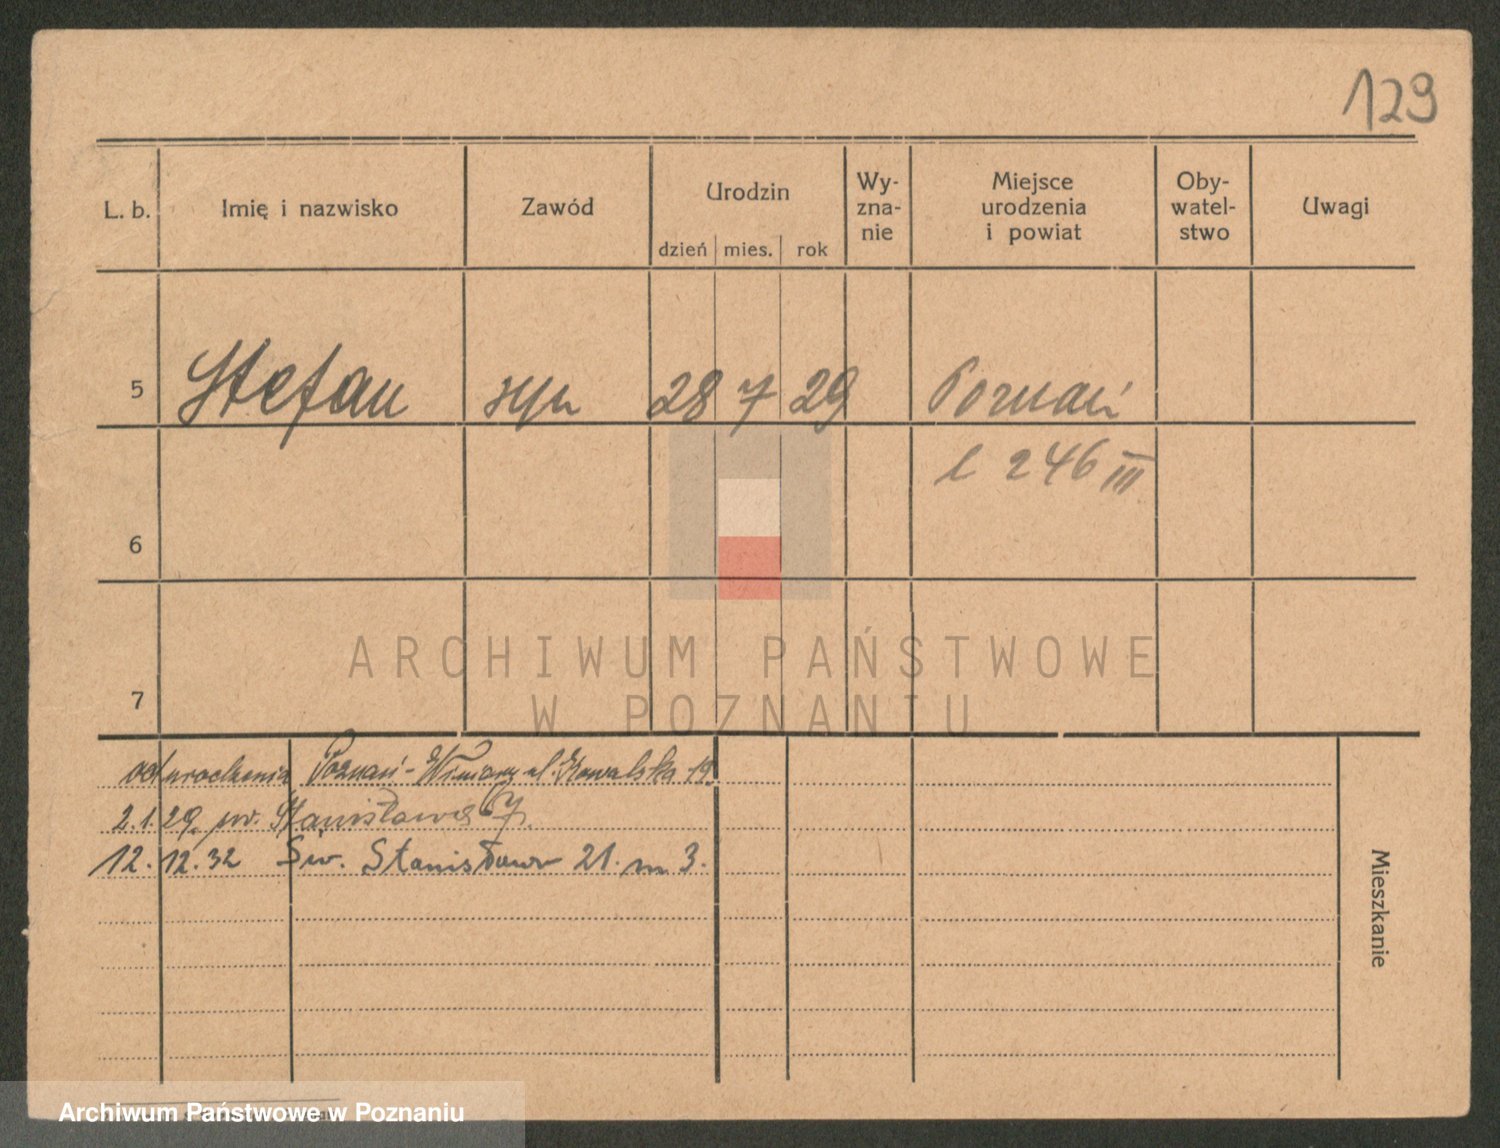 129
L. b. Imię i nazwisko Zawód Urodzin dzień mies. rok Wy-zna-nie Miejsce urodzenia i powiat Oby-watel-stwo Uwagi
5 Stefan syn 28 7 29 Poznań
l 246 III
6
7
ARCHIWUM PAŃSTWOWE
W POZNANIU
od urodzenia Poznań-Winiary ul. Kowalska 19
2.1.29. św. Stanisława 7.
12.12.32 Św. Stanisława 21. m 3.
Mieszkanie
Archiwum Państwowe w Poznaniu